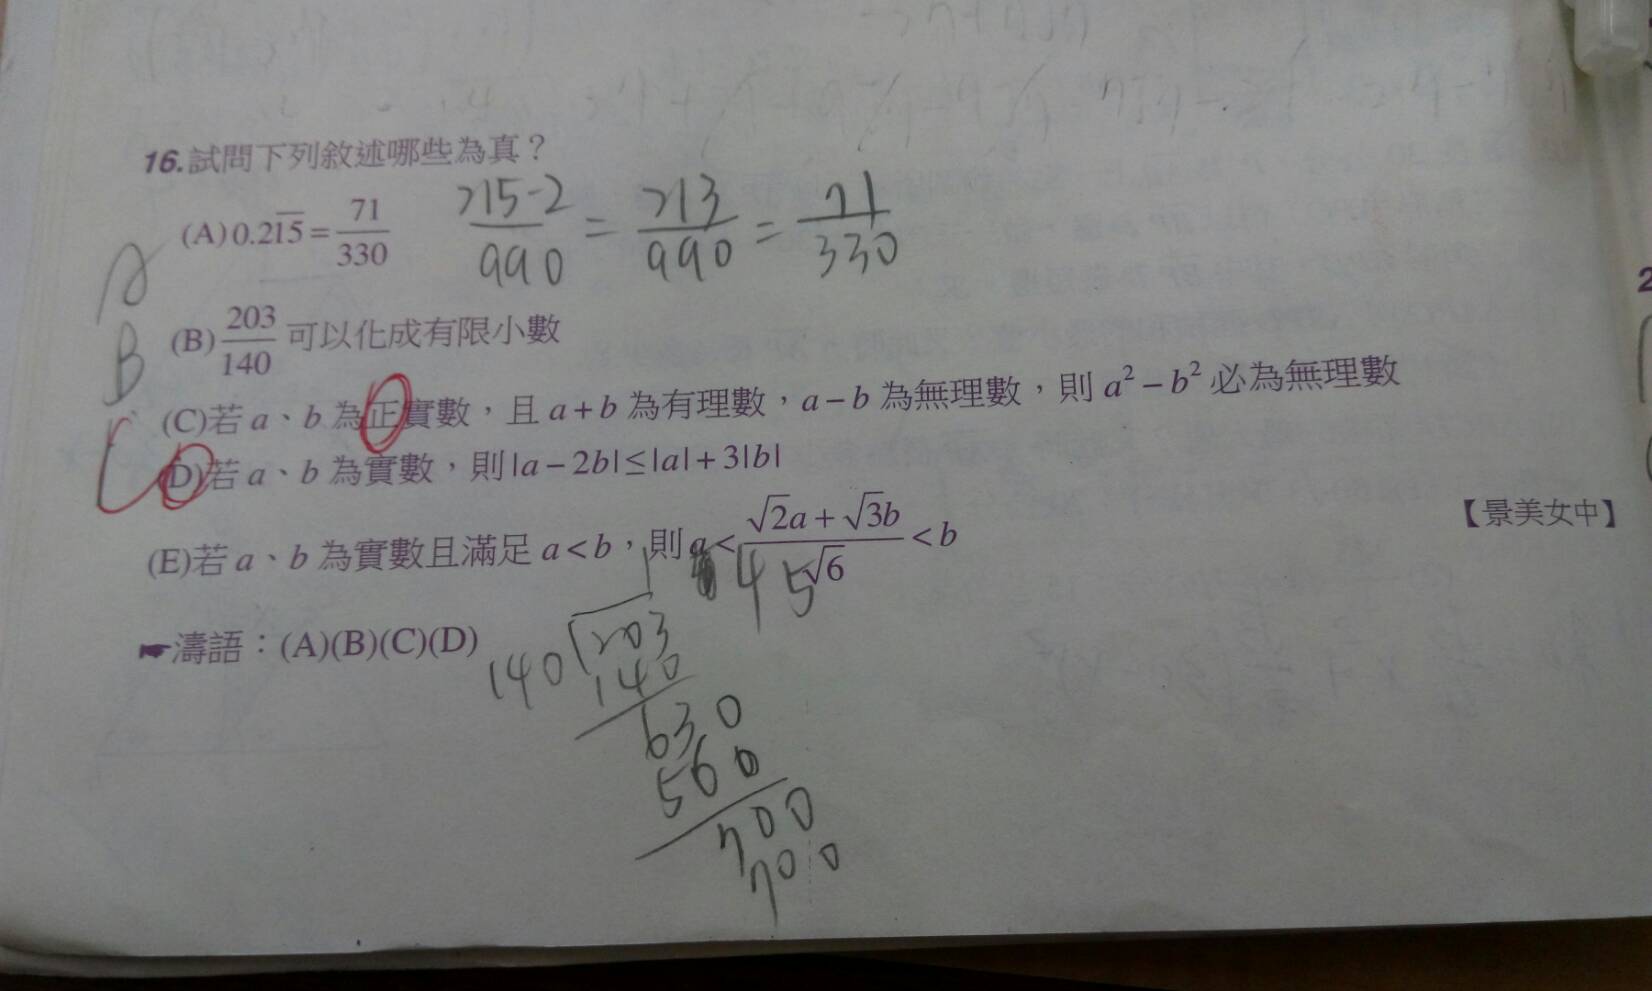 16.試問下列敘述哪些為真？
(A) 0.2\overline{15} = \frac{71}{330} \frac{215-2}{990} = \frac{213}{990} = \frac{71}{330}
A
(B) \frac{203}{140} 可以化成有限小數
B
(C)若 a、b 為正實數，且 a + b 為有理數，a − b 為無理數，則 a² − b² 必為無理數
C
(D)若 a、b 為實數，則 |a − 2b| ≤ |a| + 3|b|
(E)若 a、b 為實數且滿足 a < b，則 a < \frac{\sqrt{2}a + \sqrt{3}b}{\sqrt{6}} < b
【景美女中】
☛濤語：(A)(B)(C)(D)
1 4 5
140 203
140
630
560
700
700
2